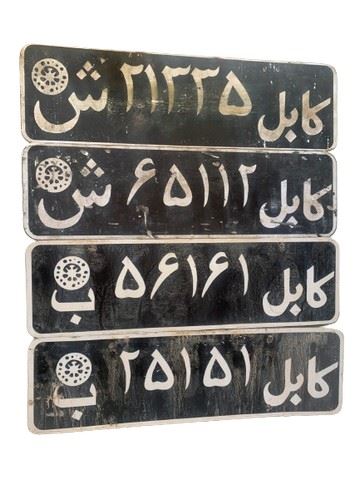 کابل ۲۱۳۳۵ ش
کابل ۶۵۱۱۲ ش
کابل ۵۶۱۶۱ ب
کابل ۲۵۱۵۱ ب